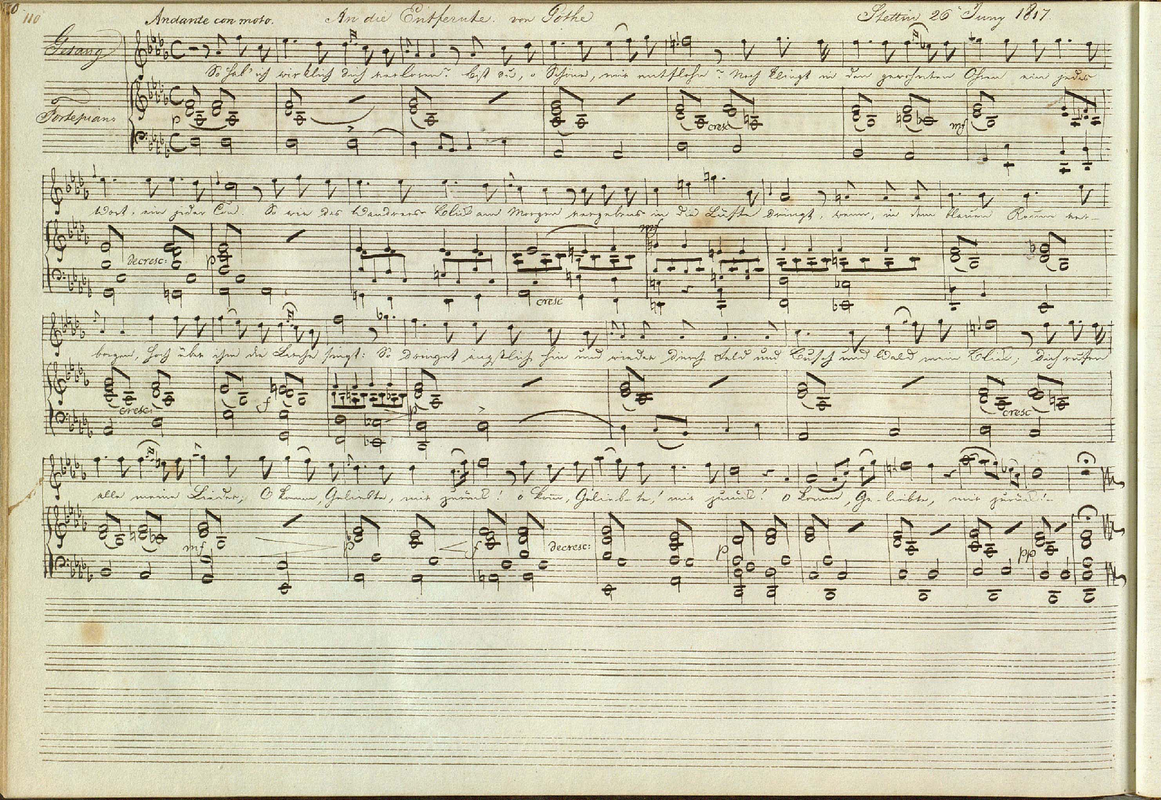 110
Andante con moto. An die Entfernte. von Göthe Stettin 26 Juny 1817
Gesang
So hab' ich wirklich dich verloren? Bist du, o Schöne, mir entflohn? Noch klingt in den gewohnten Ohren ein jedes
Fortepiano
p cresc mf
Wort, ein jeder Ton. So wie des Wandrers Blick am Morgen vergebens in die Lüfte dringt, wenn, in dem blauen Raum ver-
mf
decresc: p cresc
borgen, hoch über ihm die Lerche singt: So dringet ängstlich hin und wieder durch Feld und Busch und Wald mein Blick; dich rufen
cresc: f p cresc
alle meine Lieder, O komm, Geliebte, mir zurück! o komm, Geliebte, mir zurück! o komm, Geliebte, mir zurück!
mf p f decresc: p pp